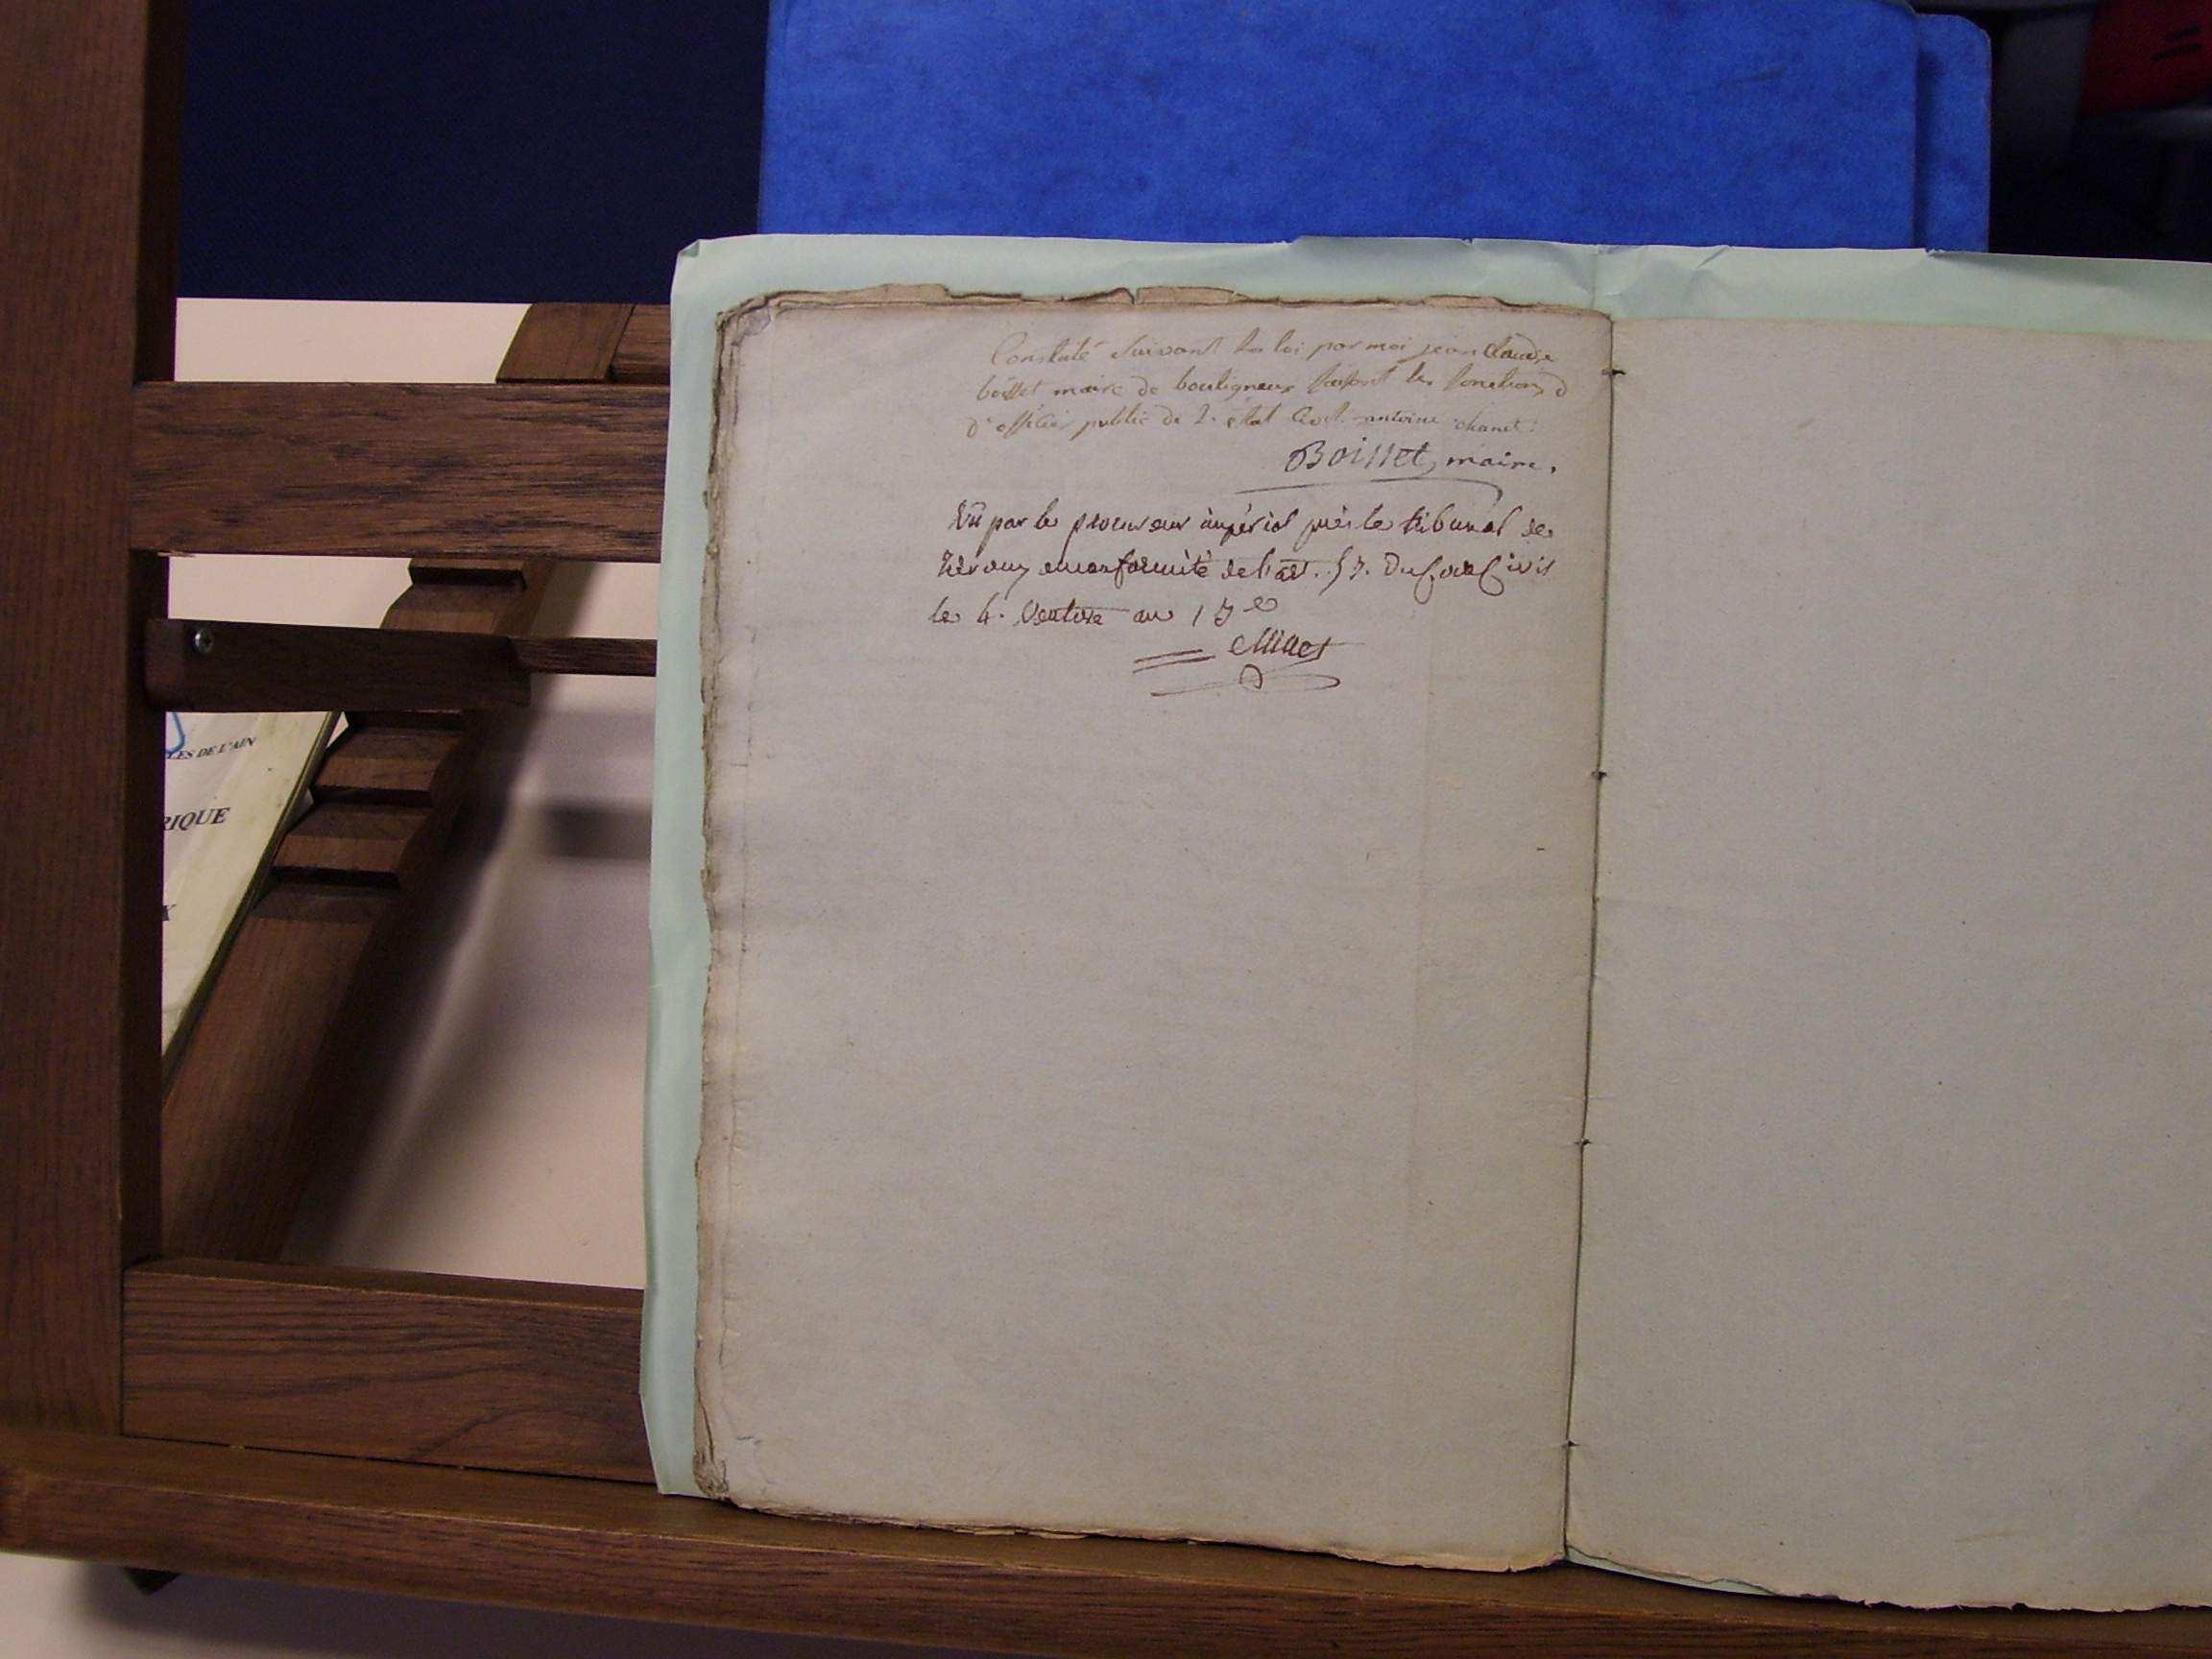 Constaté suivant la loi par moi jean Claude
boisset maire de bouligneux faisant les fonctions d
d'officier public de l'état Civil. antoine chanet.
Boisset, maire.
Vû par le procureur impérial près le tribunal de
Trévoux en conformité de l'art. 53. du Code Civil
le 4. Ventose an 13e
LES DE L'AIN
RIQUE
X